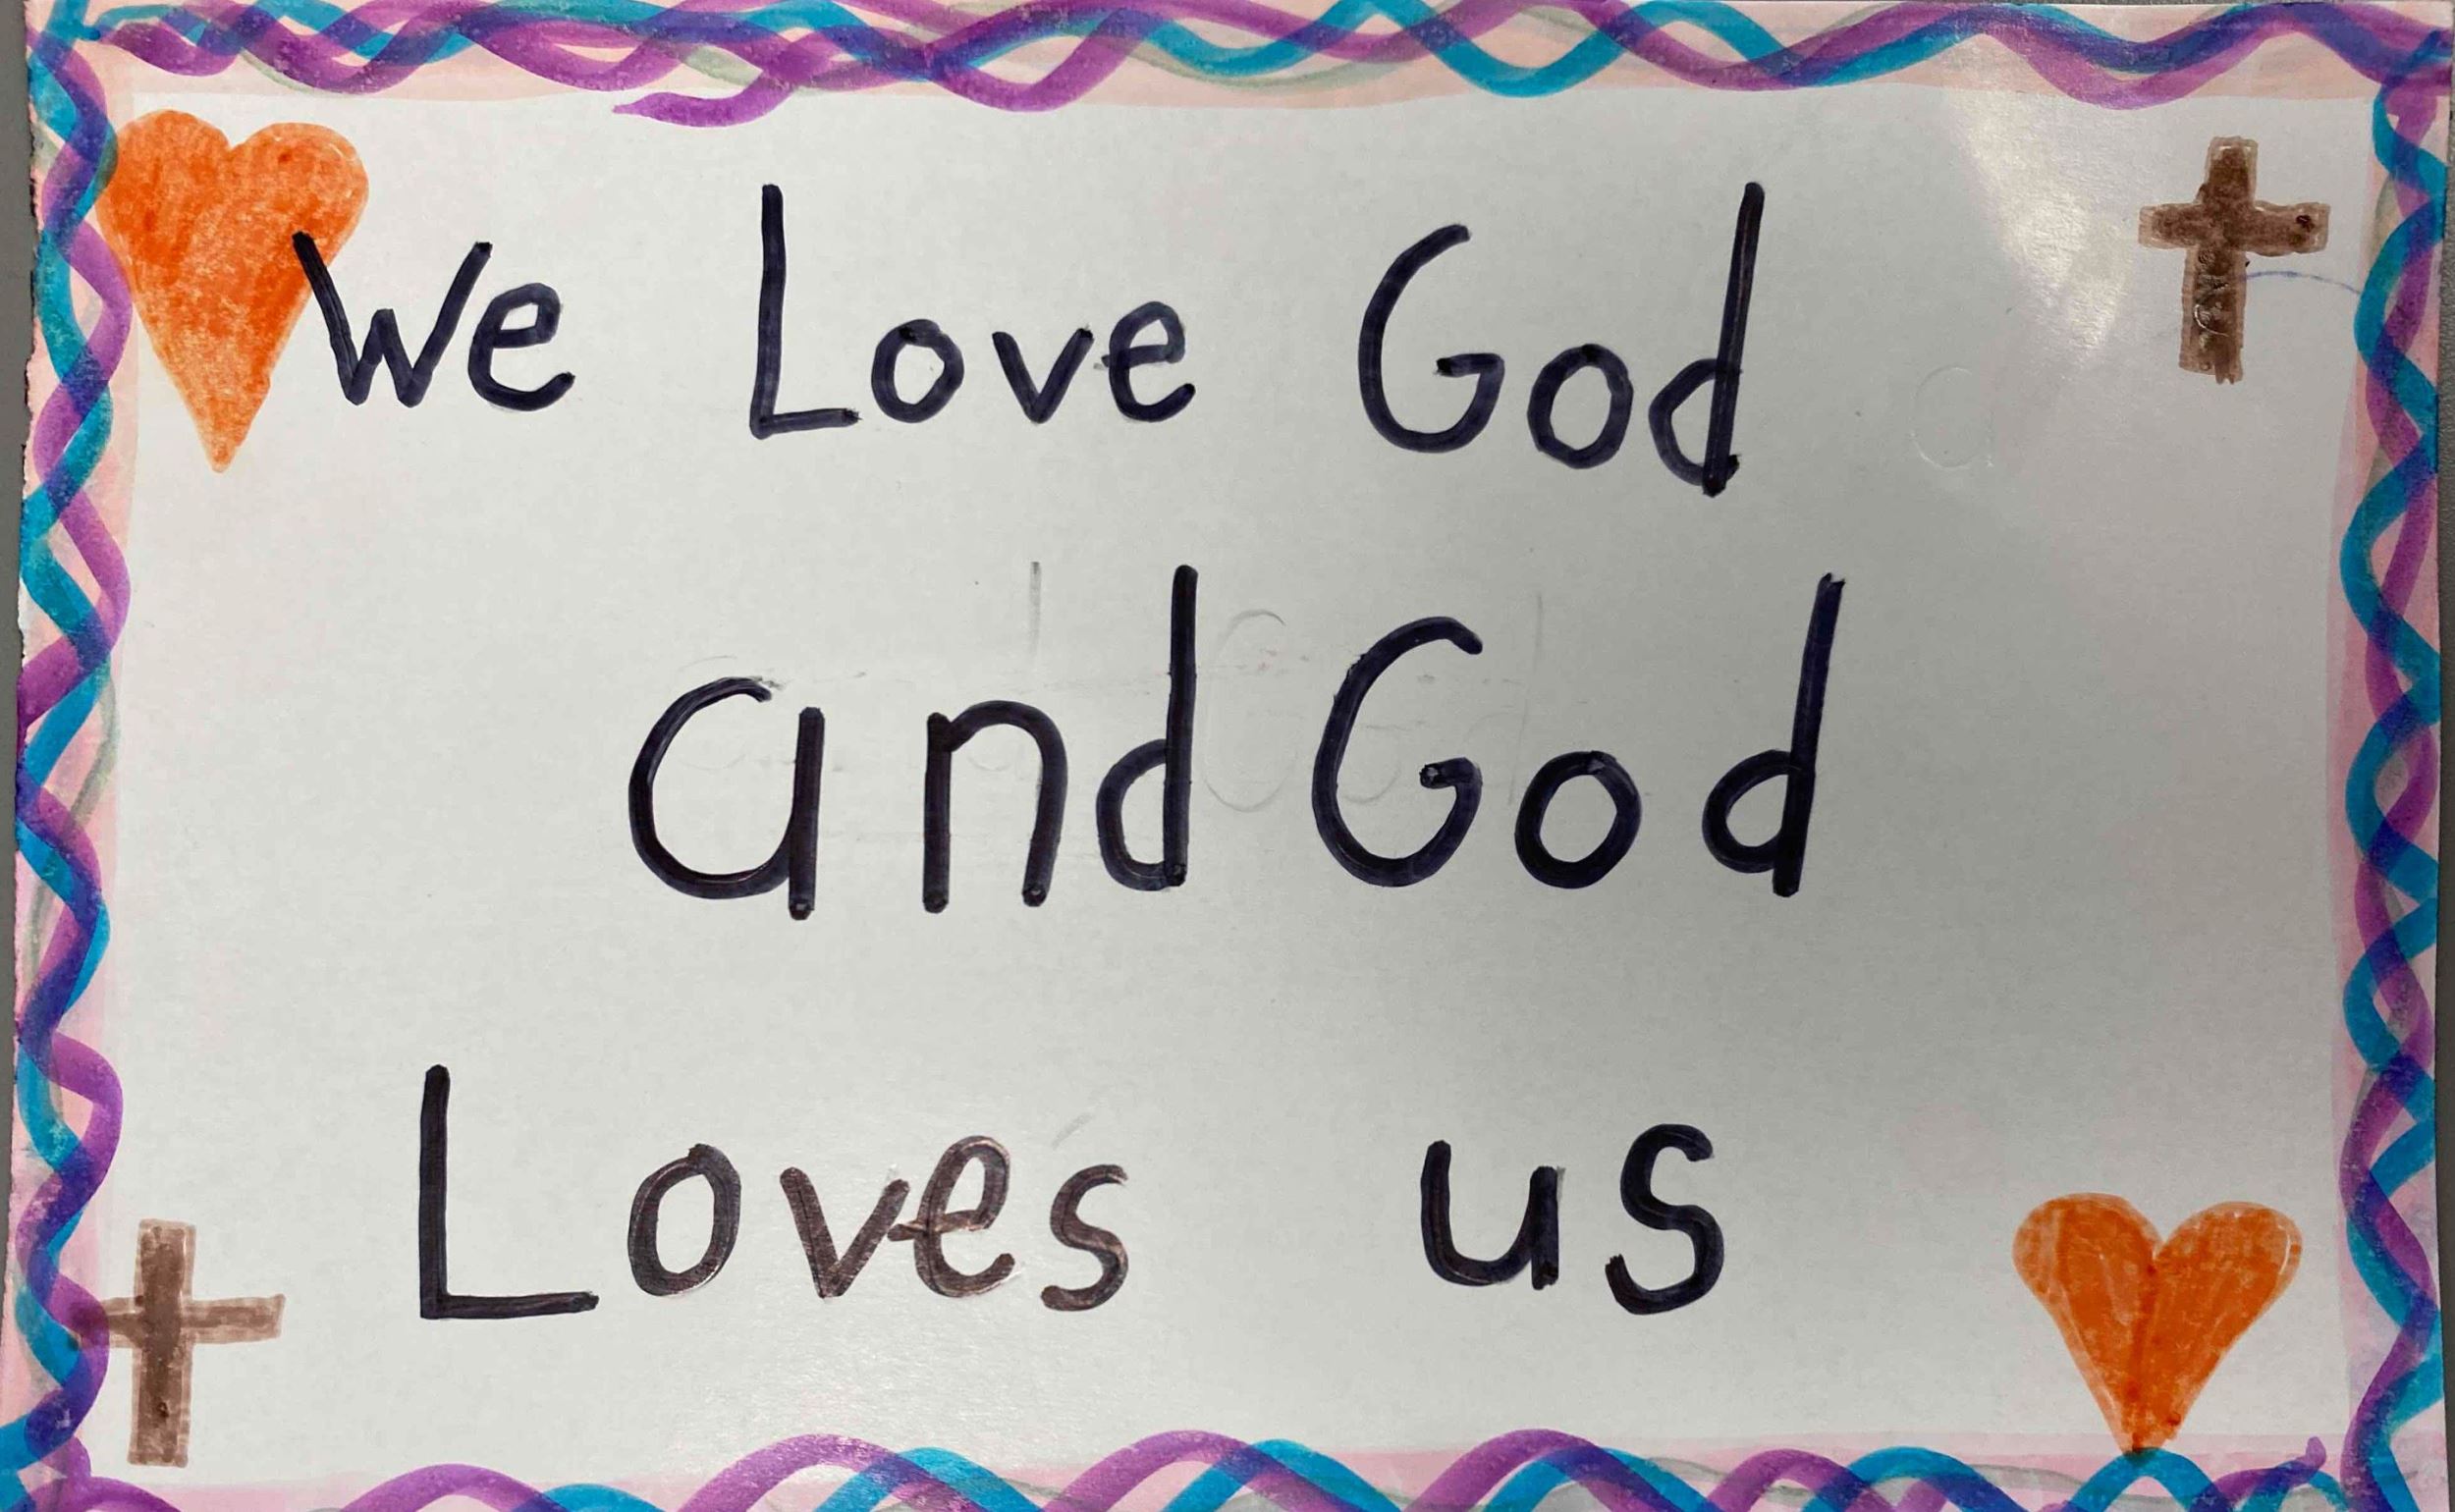 We Love God
and God
Loves us